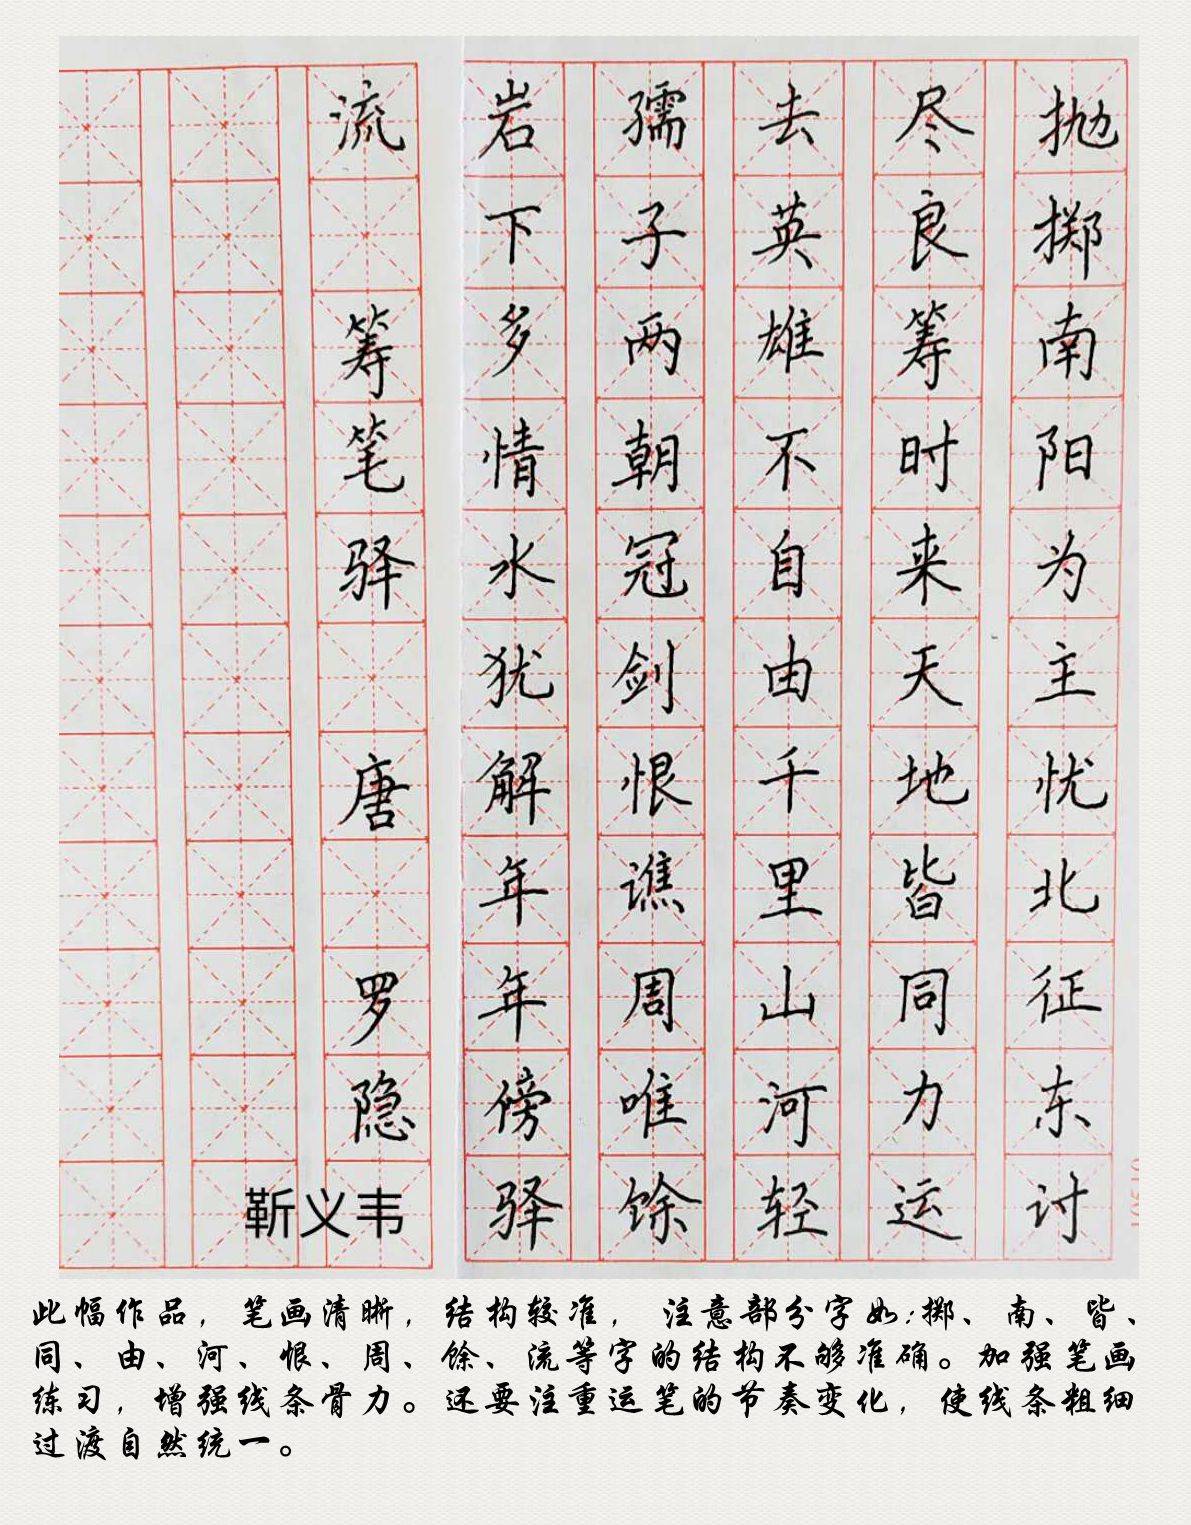 抛掷南阳为主忧北征东讨
尽良筹时来天地皆同力运
去英雄不自由千里山河轻
孺子两朝冠剑恨谯周唯馀
岩下多情水犹解年年傍驿
流 筹笔驿 唐 罗隐
靳义韦
此幅作品，笔画清晰，结构较准， 注意部分字如:掷、南、皆、
同、由、河、恨、周、馀、流等字的结构不够准确。加强笔画
练习，增强线条骨力。还要注重运笔的节奏变化，使线条粗细
过渡自然统一。